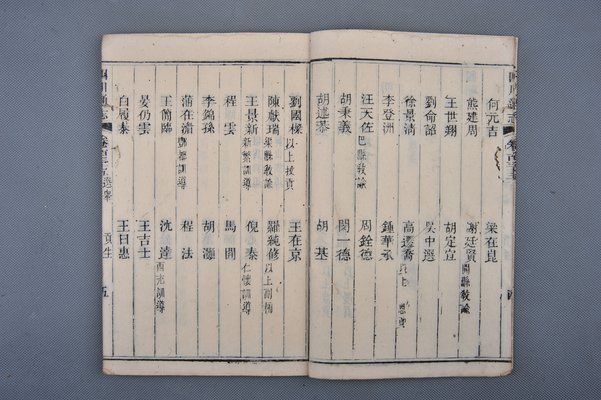 四川通志
何元吉 梁在崑
熊建周 謝廷賢 開縣教諭
王世翔 胡定宣
劉侖韶 吳中選
徐景清 高遷喬
李登洲 鍾華承
汪天佐 巴縣教諭 周銓德
胡秉義 閔一德
胡述恭 胡基
劉國樑 以上拔貢 王在京
陳獻瑞 梁縣教諭 羅純修 以上副榜
王景新 新繁訓導 倪泰 仁懷訓導
程雲 馬開
李錦孫 胡灝
蒲在湝 酆都訓導 程法
王蘭陔 沈達 西充訓導
晏仍雲 王吉士
白履泰 王日惠
四川通志 選舉 貢生 五